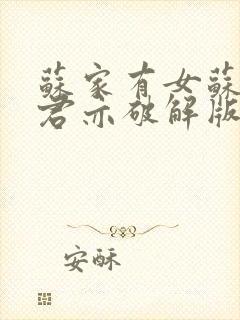 蘇家有女蘇
君亦破解版
安酥